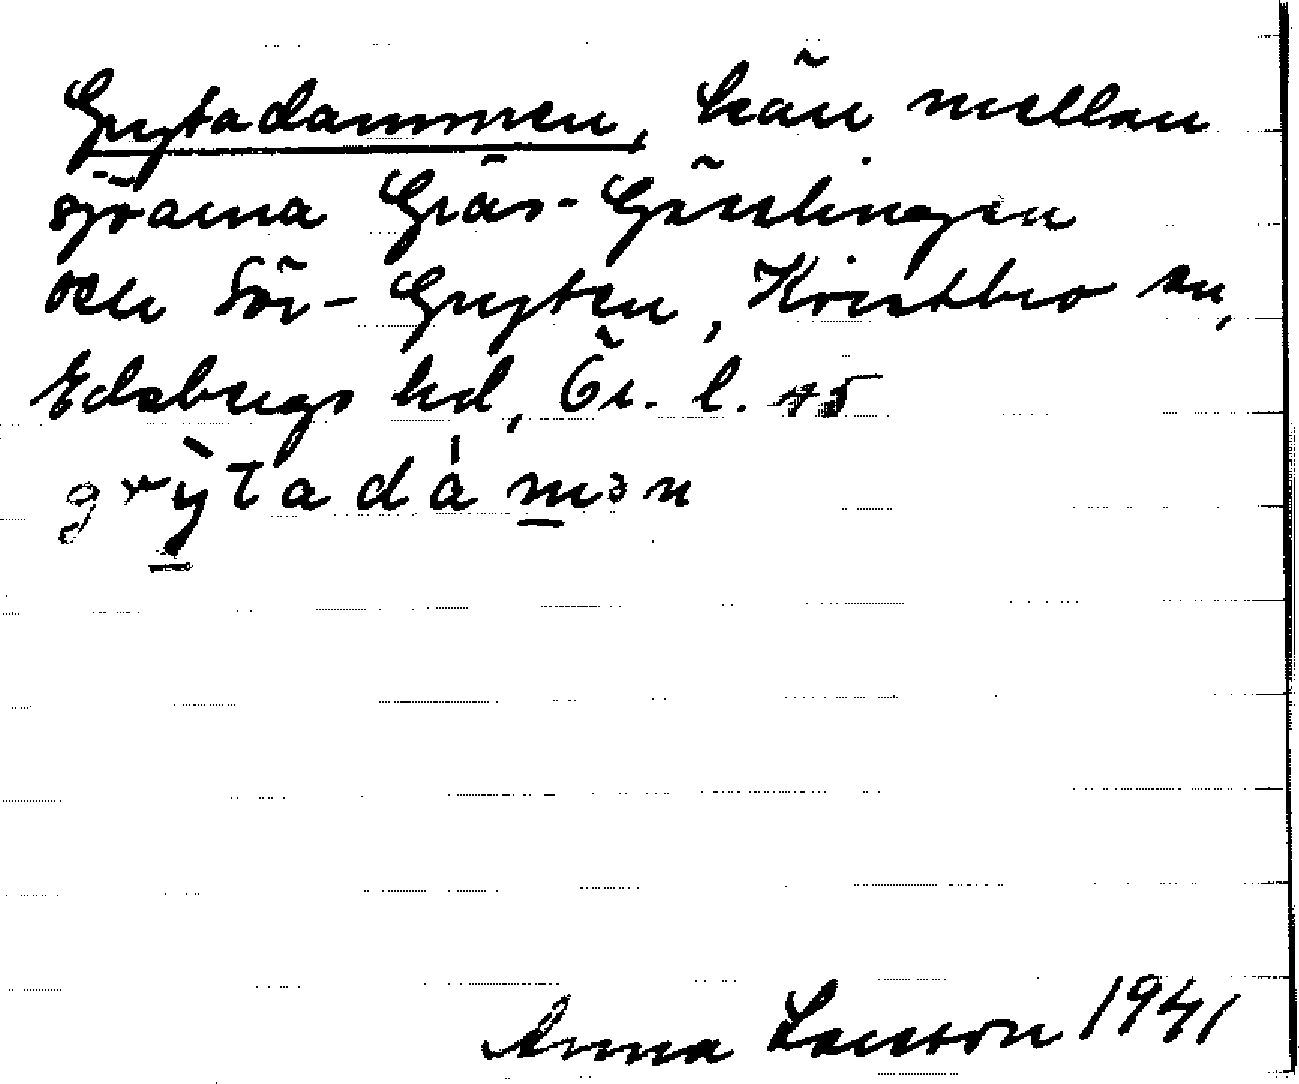 Grytadammen, kärr mellan
sjöarna Gräs-Gässlingen
och Sör-Gryten, Kvistbro sn,
Edsbergs hd, Ör. l.
grỳtadámən
Anna Larsson 1941